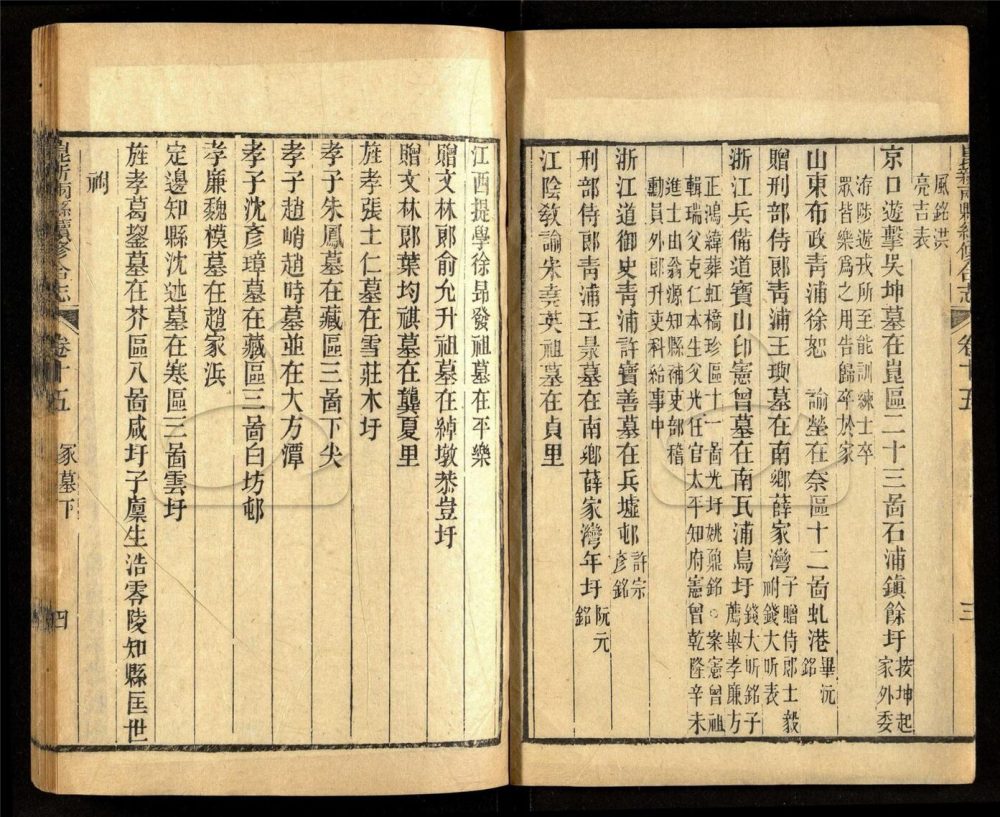 風銘洪
亮吉表
京口遊擊吳坤墓在崑區二十三啚石浦鎮餘圩按坤起家外委
洊陟遊戎所至能訓練士卒
眾皆樂爲之用告歸卒於家
山東布政青浦徐恕諭塋在奈區十二啚虬港畢沅銘
贈刑部侍郎青浦王璵墓在南鄉薛家灣子贈侍郎士毅祔錢大昕表
浙江兵備道寶山印憲曾墓在南瓦浦鳥圩錢大昕銘子薦舉孝廉方
正鴻緯葬虹橋珍區十一啚光圩姚鼐銘○案憲曾祖
輯瑞父克仁本生父光任官太平知府憲曾乾隆辛未
進士由翁源知縣補吏部稽
勳員外郎升吏科給事中
浙江道御史青浦許寶善墓在兵墟邨許宗彥銘
刑部侍郎青浦王㫤墓在南鄉薛家灣年圩阮元銘
江陰敎諭朱堯英祖墓在貞里
三
江西提學徐昂發祖墓在平樂
贈文林郎俞允升祖墓在綽墩恭豈圩
贈文林郎葉均祺墓在龔夏里
旌孝張士仁墓在雪莊木圩
孝子朱鳳墓在藏區三啚下尖
孝子趙峭趙時墓並在大方潭
孝子沈彥璋墓在藏區三啚白坊邨
孝廉魏模墓在趙家浜
定邊知縣沈墓在寒區三啚雲圩
旌孝葛鋆墓在芥區八啚咸圩子廩生浩零陵知縣匡世
祔
崑新兩縣續修合志 卷十五 冢墓下 四